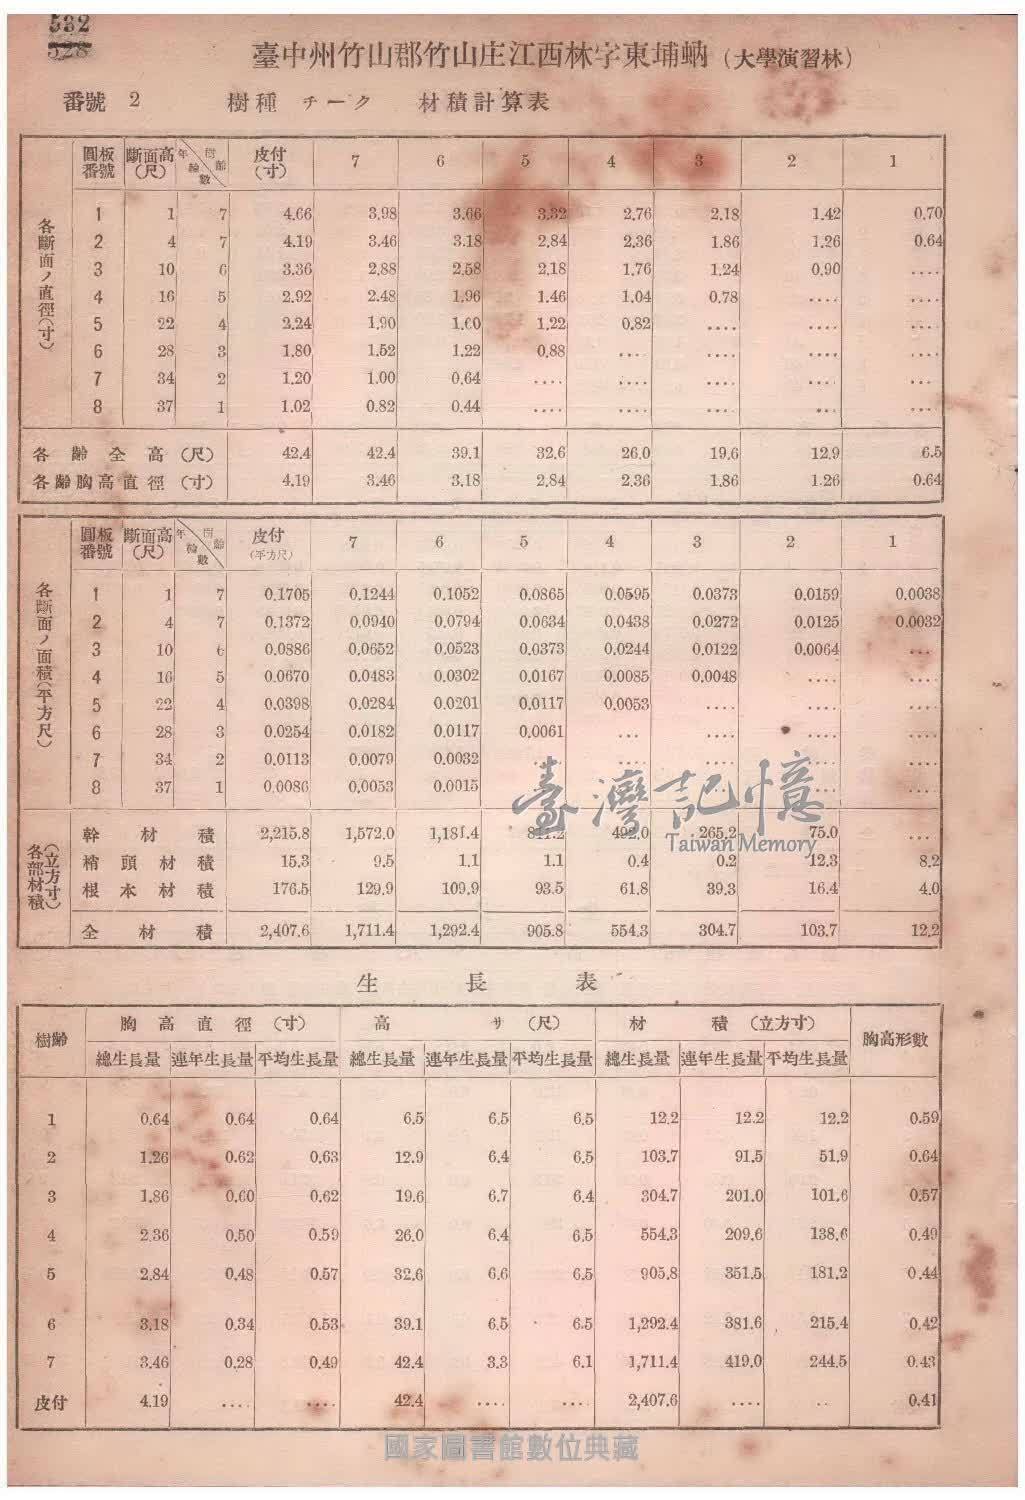 532
528
臺中州竹山郡竹山庄江西林字東埔蚋(大學演習林)
番號 2 樹種 チーク 材積計算表
圓板番號 斷面高(尺) 年輪數 樹齡 皮付(寸) 7 6 5 4 3 2 1
各斷面ノ直徑(寸)
1 1 7 4.66 3.98 3.66 3.32 2.76 2.18 1.42 0.70
2 4 7 4.19 3.46 3.18 2.84 2.36 1.86 1.26 0.64
3 10 6 3.36 2.88 2.58 2.18 1.76 1.24 0.90 ....
4 16 5 2.92 2.48 1.96 1.46 1.04 0.78 .... ....
5 22 4 2.24 1.90 1.60 1.22 0.82 .... .... ....
6 28 3 1.80 1.52 1.22 0.88 ... .... .... ....
7 34 2 1.20 1.00 0.64 .... .... .... .... ....
8 37 1 1.02 0.82 0.44 .... .... .... ... ....
各齡全高(尺) 42.4 42.4 39.1 32.6 26.0 19.6 12.9 6.5
各齡胸高直徑(寸) 4.19 3.46 3.18 2.84 2.36 1.86 1.26 0.64
圓板番號 斷面高(尺) 年輪數 樹齡 皮付(平方尺) 7 6 5 4 3 2 1
各斷面ノ面積(平方尺)
1 1 7 0.1705 0.1244 0.1052 0.0865 0.0595 0.0373 0.0159 0.0038
2 4 7 0.1372 0.0940 0.0794 0.0634 0.0438 0.0272 0.0125 0.0032
3 10 6 0.0886 0.0652 0.0523 0.0373 0.0244 0.0122 0.0064 ...
4 16 5 0.0670 0.0483 0.0302 0.0167 0.0085 0.0048 .... ....
5 22 4 0.0398 0.0284 0.0201 0.0117 0.0053 .... .... ....
6 28 3 0.0254 0.0182 0.0117 0.0061 ... .... .... ....
7 34 2 0.0113 0.0079 0.0032 .... .... .... ....
8 37 1 0.0086 0.0053 0.0015 .... ....
各部材積(立方寸)
幹材積 2,215.8 1,572.0 1,181.4 811.2 492.0 265.2 75.0 ...
梢頭材積 15.3 9.5 1.1 1.1 0.4 0.2 12.3 8.2
根本材積 176.5 129.9 109.9 93.5 61.8 39.3 16.4 4.0
全材積 2,407.6 1,711.4 1,292.4 905.8 554.3 304.7 103.7 12.2
臺灣記憶
Taiwan Memory
生長表
樹齡 胸高直徑(寸) 高サ(尺) 材積(立方寸) 胸高形數
總生長量 連年生長量 平均生長量 總生長量 連年生長量 平均生長量 總生長量 連年生長量 平均生長量
1 0.64 0.64 0.64 6.5 6.5 6.5 12.2 12.2 12.2 0.59
2 1.26 0.62 0.63 12.9 6.4 6.5 103.7 91.5 51.9 0.64
3 1.86 0.60 0.62 19.6 6.7 6.4 304.7 201.0 101.6 0.57
4 2.36 0.50 0.59 26.0 6.4 6.5 554.3 209.6 138.6 0.49
5 2.84 0.48 0.57 32.6 6.6 6.5 905.8 351.5 181.2 0.44
6 3.18 0.34 0.53 39.1 6.5 6.5 1,292.4 381.6 215.4 0.42
7 3.46 0.28 0.49 42.4 3.3 6.1 1,711.4 419.0 244.5 0.43
皮付 4.19 .... .... 42.4 .... .... 2,407.6 .... .. 0.41
國家圖書館數位典藏